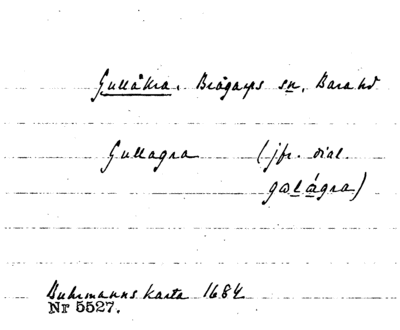 Gullåkra, Brågarps sn, Bara hd
Gullagra (jfr. dial.
gɷlágra)
Buhrmanns karta 1684
Nr 5527.